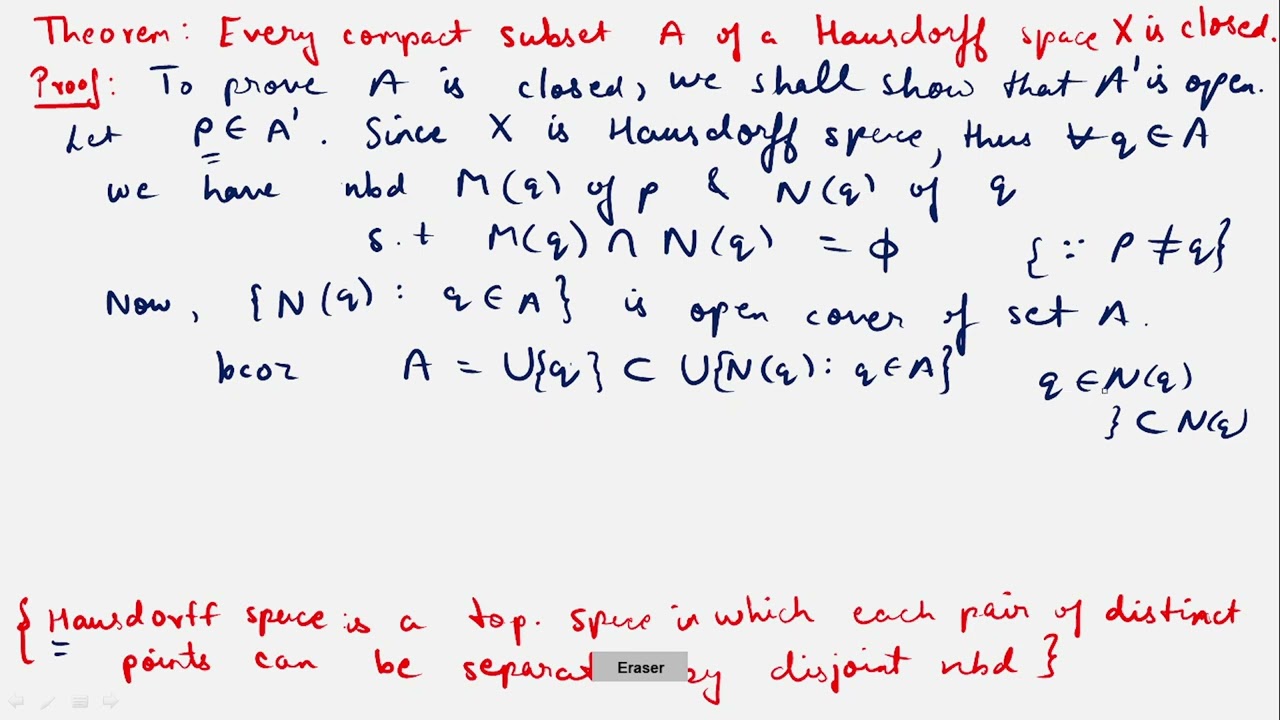 Theorem: Every compact subset A of a Hausdorff space X is closed.
Proof: To prove A is closed, we shall show that A' is open.
Let p ∈ A'. Since X is Hausdorff space, thus ∀ q ∈ A
we have nbd M(q) of p & N(q) of q
s.t M(q) ∩ N(q) = ϕ {∵ p ≠ q}
Now, {N(q) : q ∈ A} is open cover of set A.
bcoz A = ∪{q} ⊂ ∪{N(q) : q ∈ A} q ∈ N(q)
} ⊂ N(q)
{Hausdorff space is a top. space in which each pair of distinct
points can be by disjoint nbd}
Eraser